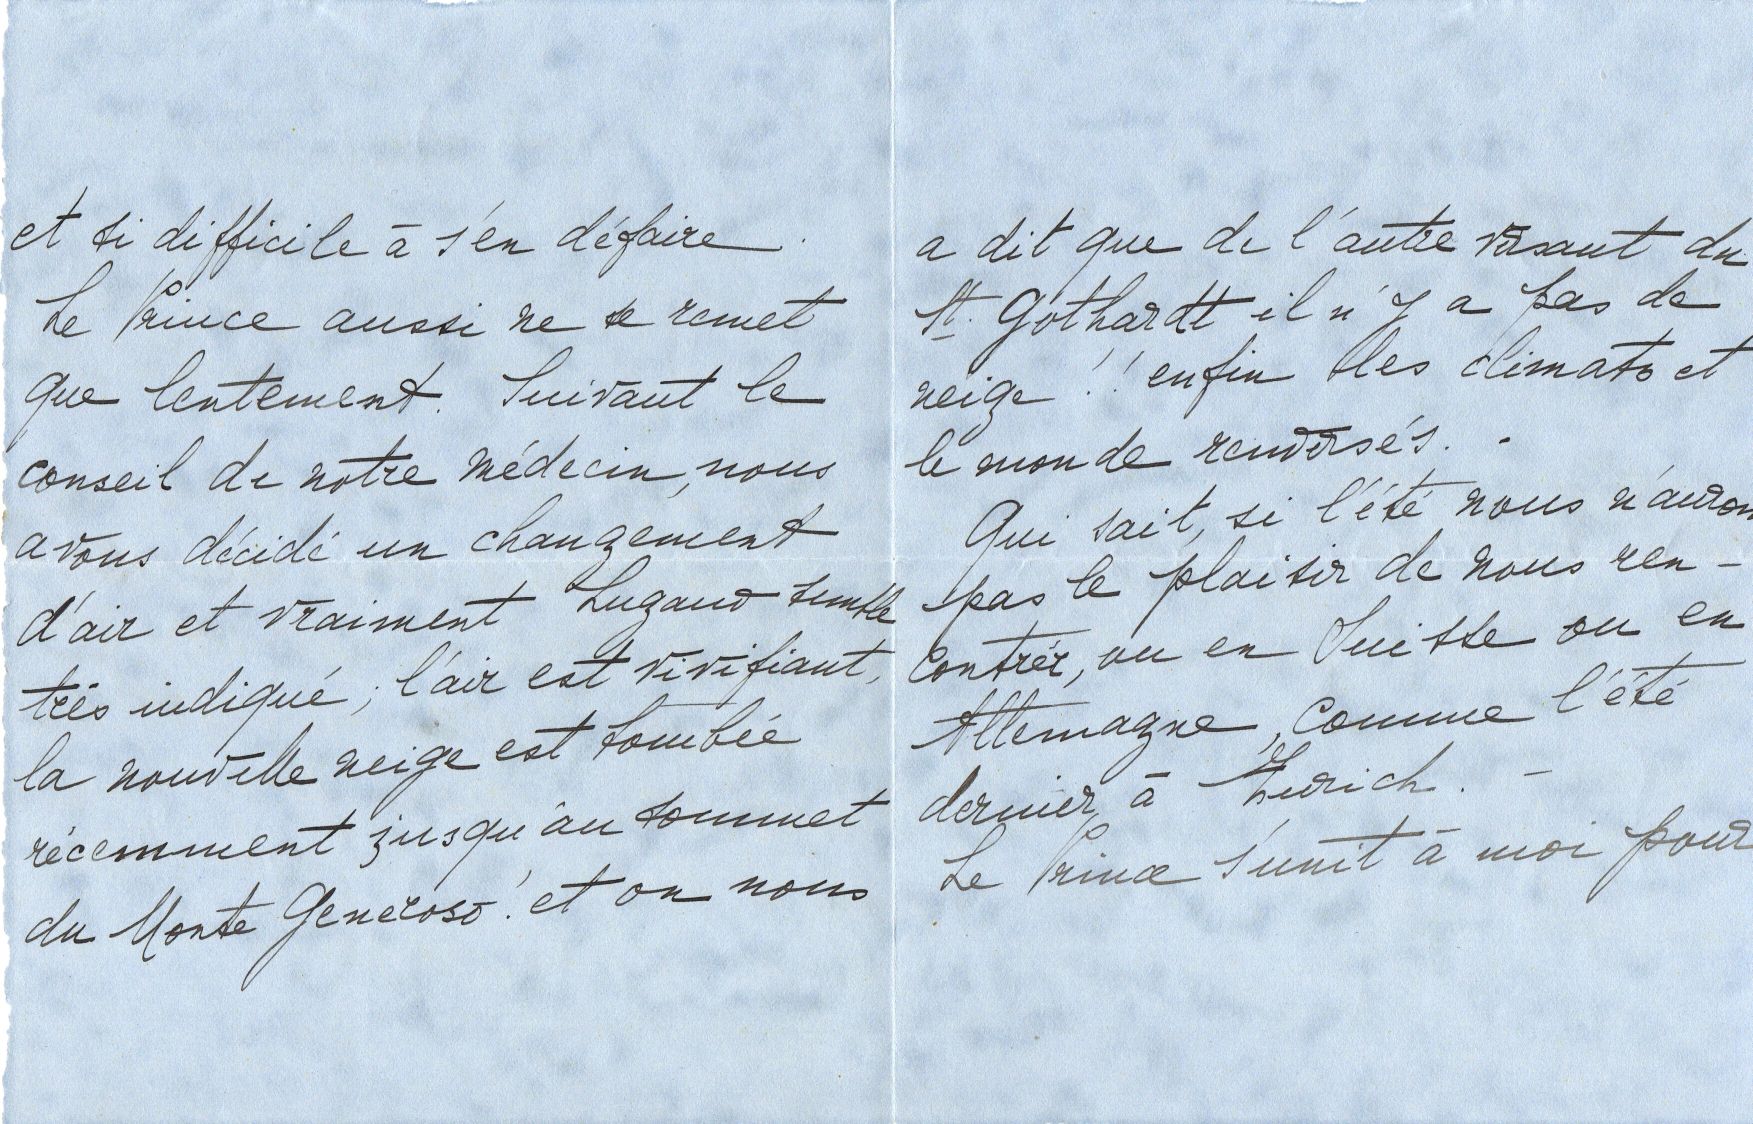 et si difficile à s'en défaire.
Le Prince aussi ne se remet
que lentement. Suivant le
conseil de notre médecin, nous
avons décidé un changement
d'air et vraiment Lugano semble
très indiqué; l'air est vivifiant,
la nouvelle neige est tombée
récemment jusqu'au sommet
du Monte Generoso! et on nous
a dit que de l'autre versant du
St. Gothardt il n'y a pas de
neige!! enfin les climats et
le monde renversés. -
Qui sait, si l'été nous n'aurons
pas le plaisir de nous ren-
contrer, ou en Suisse ou en
Allemagne, comme l'été
dernier à Zurich. -
Le Prince s'unit à moi pour